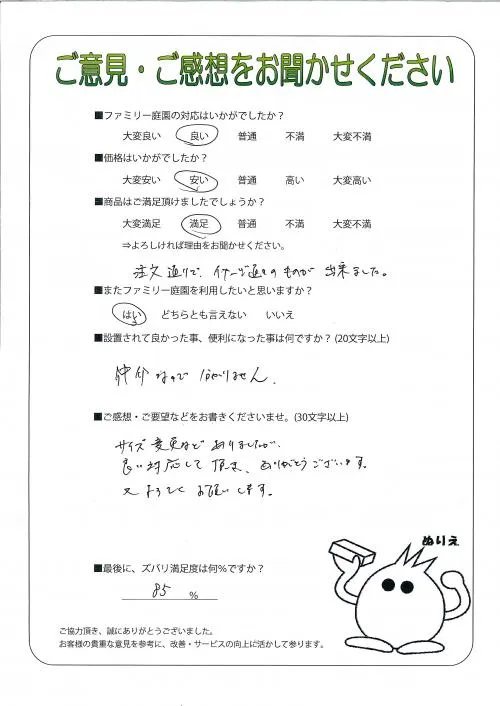 ご意見・ご感想をお聞かせください
■ファミリー庭園の対応はいかがでしたか？
大変良い　良い　普通　不満　大変不満
■価格はいかがでしたか？
大変安い　安い　普通　高い　大変高い
■商品はご満足頂けましたでしょうか？
大変満足　満足　普通　不満　大変不満
⇒よろしければ理由をお聞かせください。
注文通りで、イメージ通りのものが出来ました。
■またファミリー庭園を利用したいと思いますか？
はい　どちらとも言えない　いいえ
■設置されて良かった事、便利になった事は何ですか？(20文字以上)
仲介なので分かりません。
■ご感想・ご要望などをお書きくださいませ。(30文字以上)
サイズ変更などありましたが、
良い対応して頂き、ありがとうございます。
又よろしくお願いします。
ぬりえ
■最後に、ズバリ満足度は何％ですか？
85 %
ご協力頂き、誠にありがとうございました。
お客様の貴重な意見を参考に、改善・サービスの向上に活かして参ります。